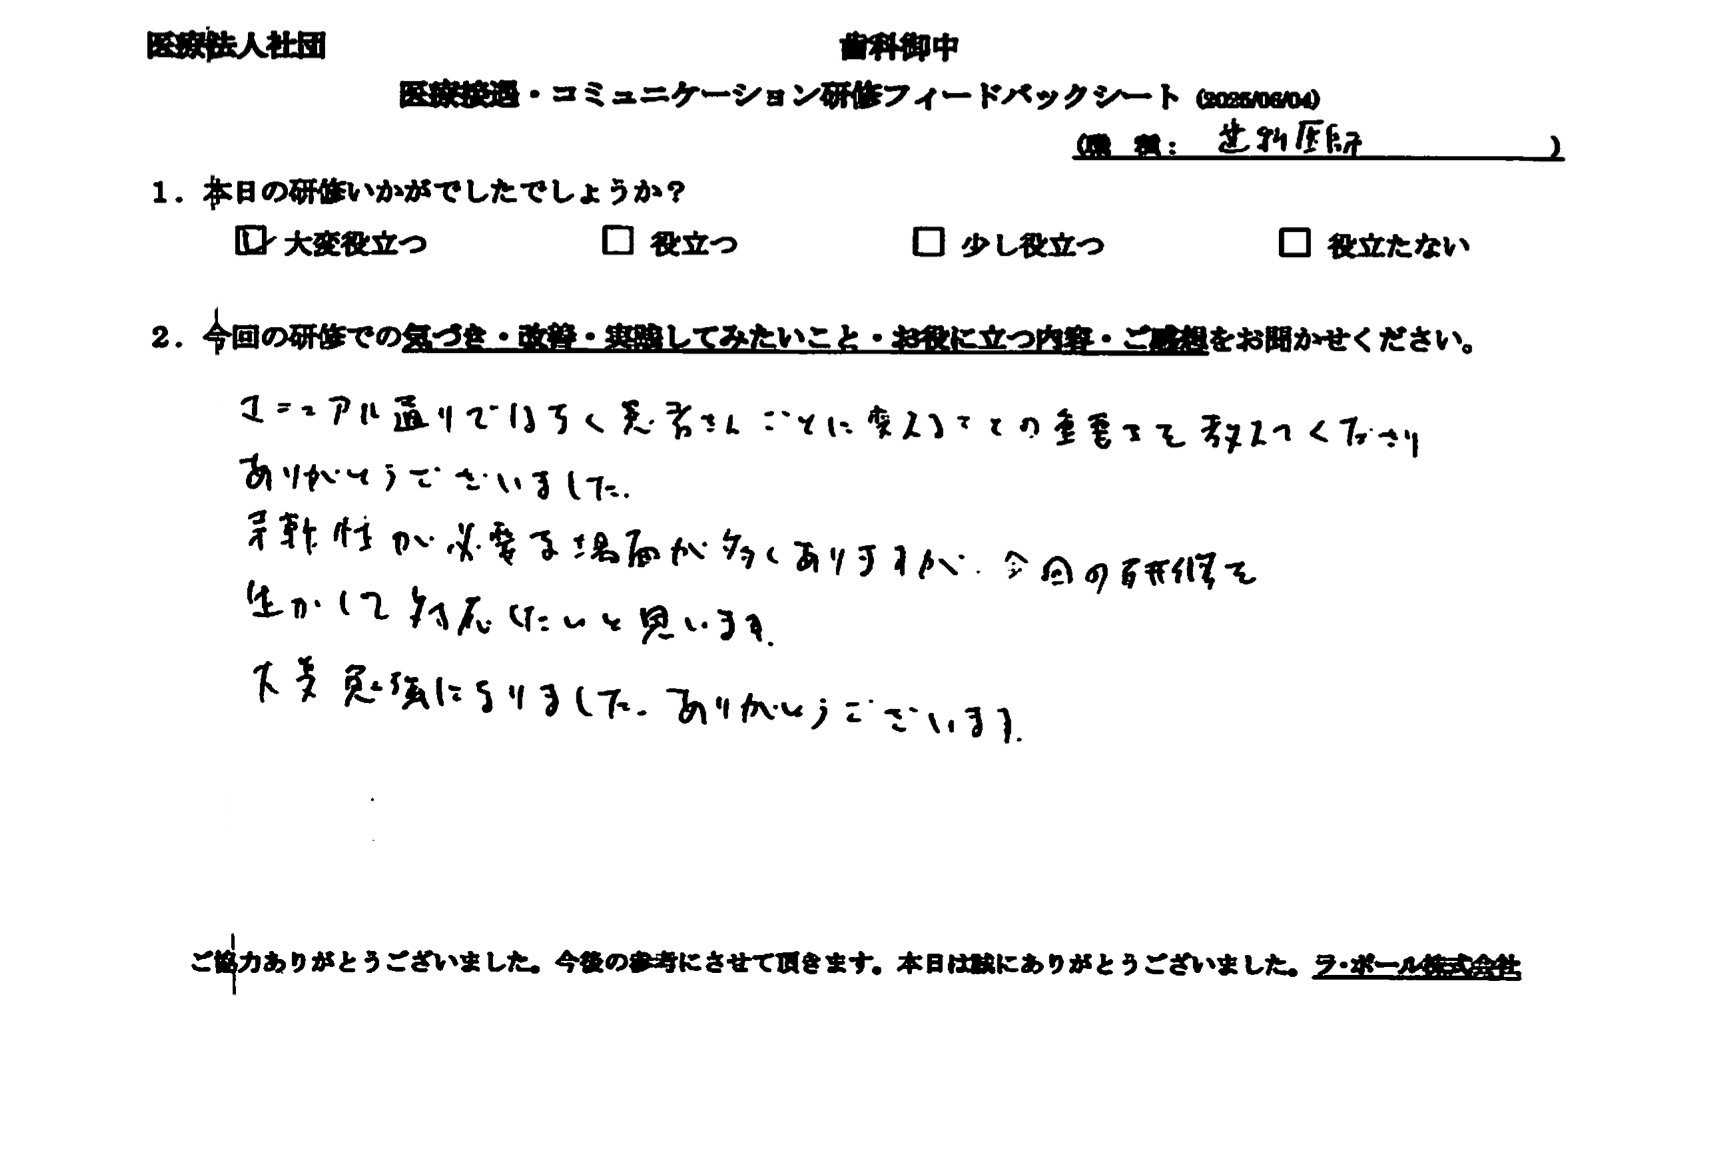 医療法人社団 歯科御中
医療接遇・コミュニケーション研修フィードバックシート (2025/06/04)
(職 種: 歯科医師 )
1. 本日の研修いかがでしたでしょうか?
☑ 大変役立つ □ 役立つ □ 少し役立つ □ 役立たない
2. 今回の研修での気づき・改善・実践してみたいこと・お役に立つ内容・ご感想をお聞かせください。
マニュアル通りではなく患者さんごとに変えることの重要さを教えてくださり
ありがとうございました.
柔軟性が必要な場面が多くありますが、今回の研修を
生かして対応したいと思います.
大変勉強になりました. ありがとうございます.
ご協力ありがとうございました。今後の参考にさせて頂きます。本日は誠にありがとうございました。ラ・ポール株式会社